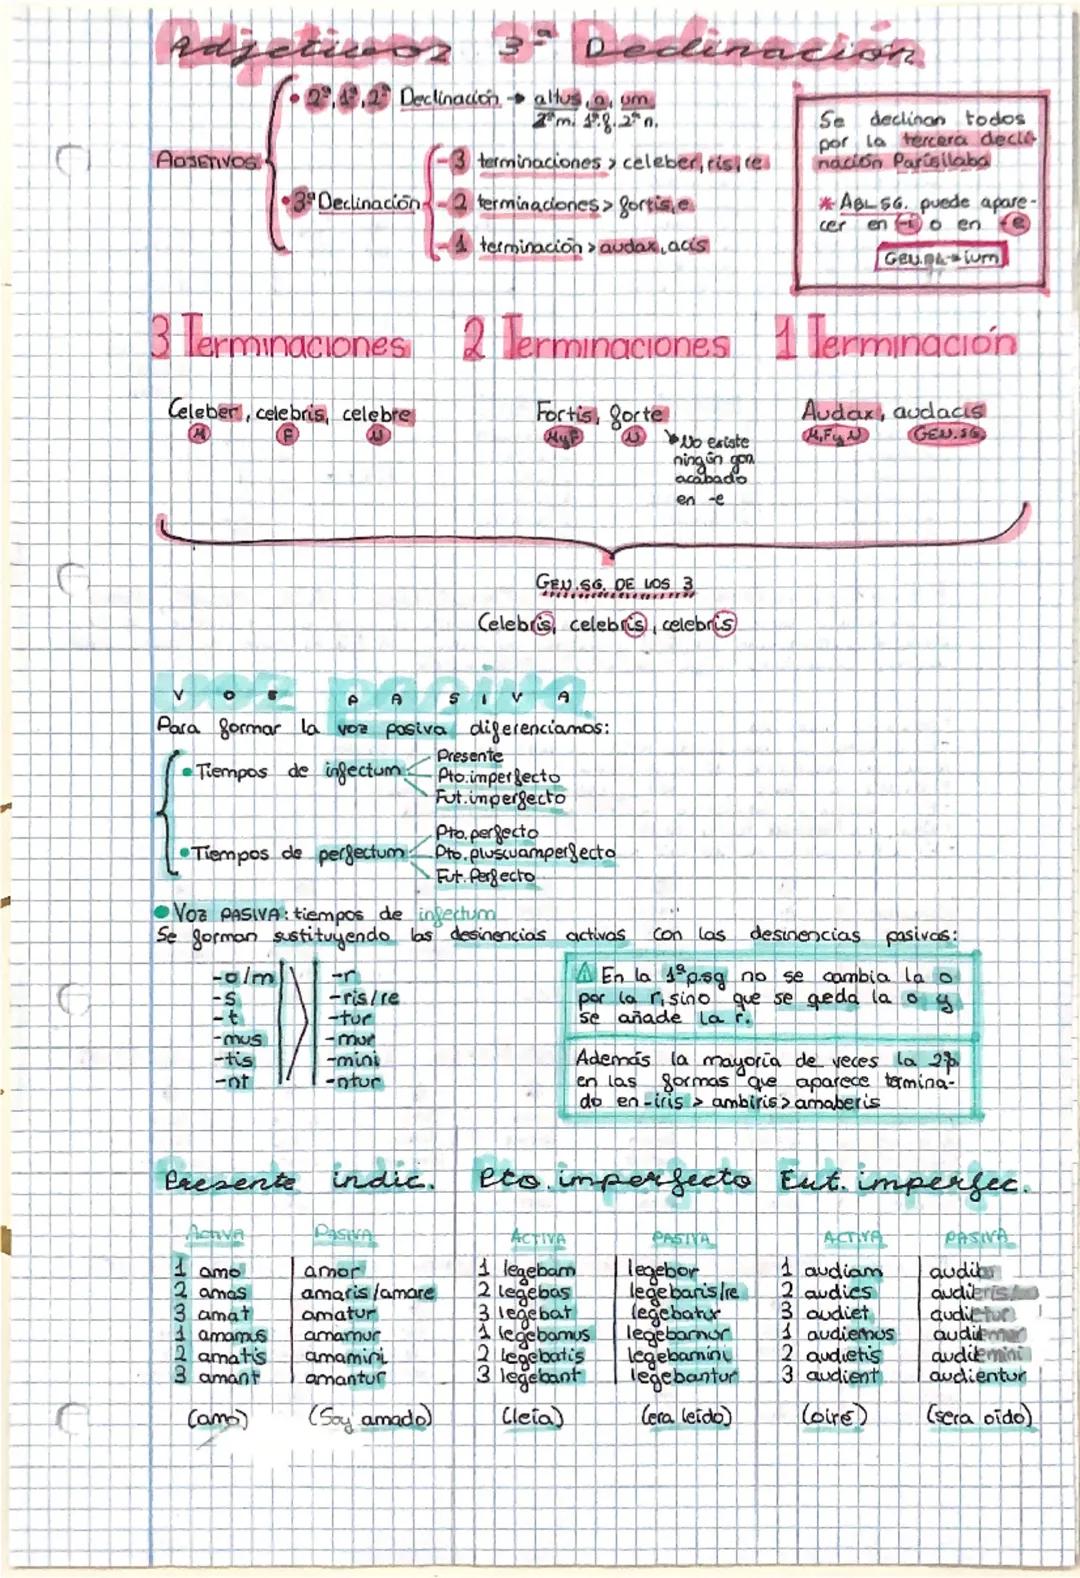 Adjetivos 3ª Declinación
• 2ª, 1ª, 2ª Declinación → altus, a, um
2ªm. 1ª f. 2ª n.
ADJETIVOS
• 3ª Declinación
-3 terminaciones > celeber, ris, re
-2 terminaciones > fortis, e
-1 terminación > audax, acis
Se declinan todos
por la tercera decli-
nación Parisílaba
* ABL SG. puede apare-
cer en -i o en -e
GEN.PL → ium
3 Terminaciones
Celeber, celebris, celebre
M F N
2 Terminaciones
Fortis, forte
M y F N
No existe
ningún gen
acabado
en -e
1 Terminación
Audax, audacis
M, F y N GEN.SG.
GEN.SG. DE LOS 3
Celebris, celebris, celebris
VOZ PASIVA
Para formar la voz pasiva diferenciamos:
• Tiempos de infectum
Presente
Pto.imperfecto
Fut.imperfecto
• Tiempos de perfectum
Pto.perfecto
Pto.pluscuamperfecto
Fut.Perfecto
• VOZ PASIVA: tiempos de infectum
Se forman sustituyendo las desinencias activas con las desinencias pasivas:
-o/m -r
-s -ris/re
-t -tur
-mus -mur
-tis -mini
-nt -ntur
En la 1ªp.sg no se cambia la o
por la r, sino que se queda la o y
se añade la r.
Además la mayoría de veces la 2ªp.
en las formas que aparece termina-
do en -iris > ambiris > amaberis
Presente indic.
ACTIVA PASIVA
1 amo amor
2 amas amaris/amare
3 amat amatur
1 amamus amamur
2 amatis amamini
3 amant amantur
(amo) (Soy amado)
Pto. imperfecto
ACTIVA PASIVA
1 legebam legebor
2 legebas legebaris/re
3 legebat legebatur
1 legebamus legebamur
2 legebatis legebamini
3 legebant legebantur
(leía) (era leído)
Fut. imperfec.
ACTIVA PASIVA
1 audiam
2 audies
3 audiet
1 audiemus
2 audietis
3 audient audientur
(oiré) (sera oído)